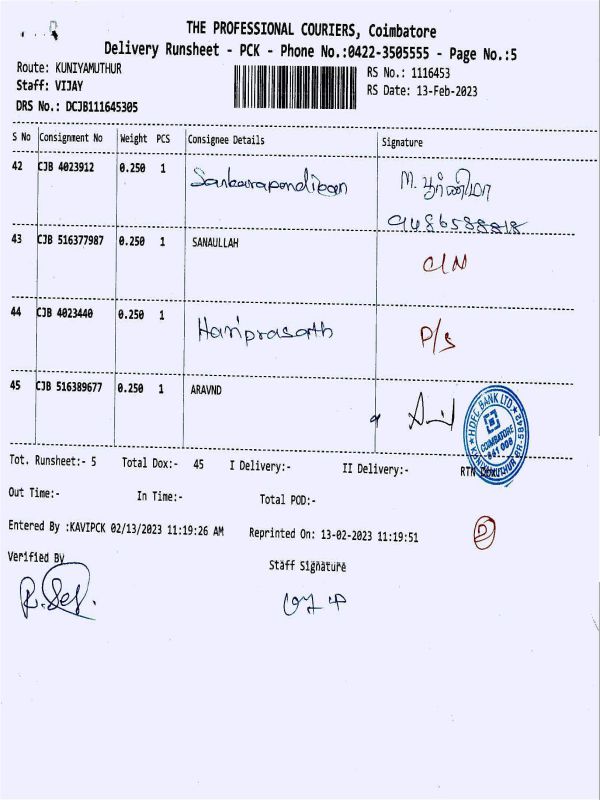 THE PROFESSIONAL COURIERS, Coimbatore
Delivery Runsheet - PCK - Phone No.:0422-3505555 - Page No.:5
Route: KUNIYAMUTHUR
RS No.: 1116453
Staff: VIJAY
RS Date: 13-Feb-2023
DRS No.: DCJB111645305
S No Consignment No Weight PCS Consignee Details Signature
42 CJB 4023912 0.250 1 Sankarapandiban M. பூர்ணிமா
9486588818
43 CJB 516377987 0.250 1 SANAULLAH C/N
44 CJB 4023440 0.250 1 Hariprasarth P/S
45 CJB 516389677 0.250 1 ARAVND
HDFC BANK LTD
COIMBATORE
641 008
BR-5842
Tot. Runsheet:- 5 Total Dox:- 45 I Delivery:- II Delivery:- RTN
Out Time:- In Time:- Total POD:-
Entered By :KAVIPCK 02/13/2023 11:19:26 AM Reprinted On: 13-02-2023 11:19:51
D
Verified By Staff Signature